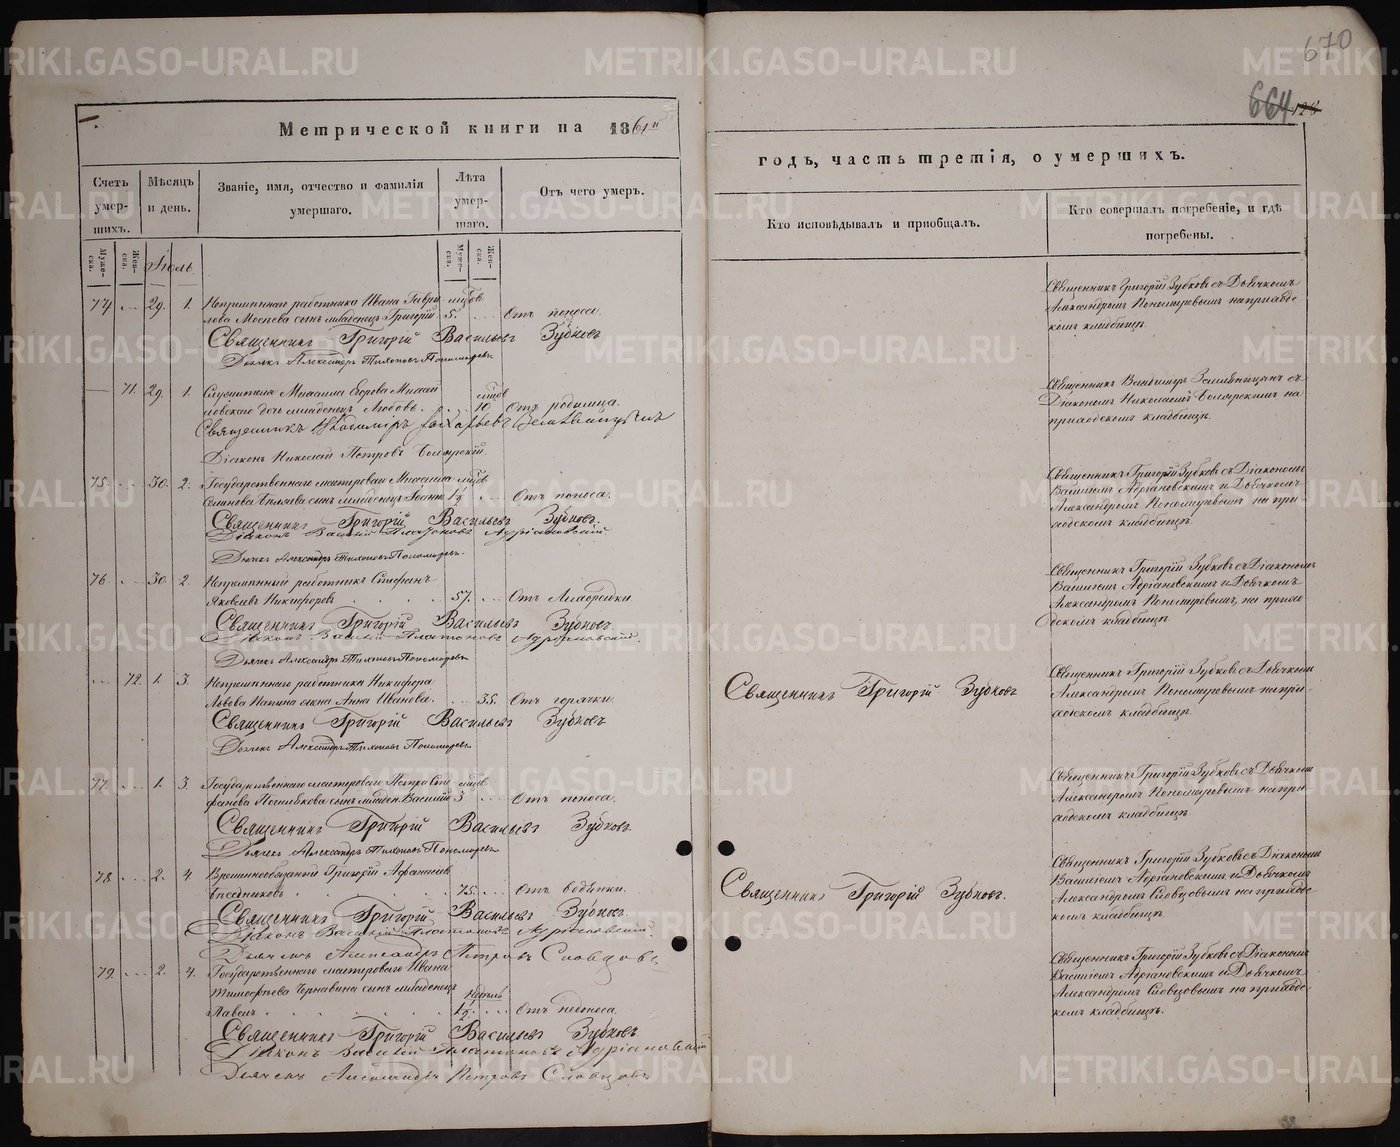 670
664 128
Метрической книги на 1861й
годъ, часть третія, о умершихъ.
Счетъ умер-шихъ.
Мѣсяцъ и день.
Званіе, имя, отчество и фамилія умершаго.
Лѣта умер-шаго.
Отъ чего умеръ.
Кто исповѣдывалъ и пріобщалъ.
Кто совершалъ погребеніе, и гдѣ погребены.
Муже-ска. Жен-ска.
Іюль
Муже-ска. Жен-ска.
74 29. 1. Непремѣннаго работника Ивана Гаври лѣтъ
лова сынъ младенецъ Григорій. 5. Отъ поноса.
Священникъ Григорій Васильевъ Зубковъ
Дьячекъ Александръ Тихоновъ Пономаревъ
Священникъ Григорій Зубковъ съ Дьячкомъ
Александромъ Пономаревымъ на приход-
скомъ кладбищѣ.
71. 29. 1. Служителя Михаила Егорова
дочь младенецъ Любовь. 10. Отъ родимца.
Священникъ Владиміръ Земляницынъ
Діаконъ Николай Петровъ Боярскій
Священникъ Владиміръ Земляницынъ съ
Діакономъ Николаемъ Боярскимъ на
приходскомъ кладбищѣ.
75. 30. 2. Государственнаго мастероваго Михаила
сынъ младенецъ Отъ поноса.
Священникъ Григорій Васильевъ Зубковъ.
Діаконъ Василій Платоновъ Адріановскій
Дьячекъ Александръ Тихоновъ Пономаревъ.
Священникъ Григорій Зубковъ съ Діакономъ
Василіемъ Адріановскимъ и Дьячкомъ
Александромъ Пономаревымъ на при-
ходскомъ кладбищѣ.
76. 30. 2. Непремѣнный работникъ Стефанъ
Яковлевъ Никифоровъ 57. Отъ лихорадки.
Священникъ Григорій Васильевъ Зубковъ.
Діаконъ Василій Платоновъ Адріановскій.
Дьячекъ Александръ Тихоновъ Пономаревъ
Священникъ Григорій Зубковъ съ Діакономъ
Василіемъ Адріановскимъ и Дьячкомъ
Александромъ Пономаревымъ, на приход-
скомъ кладбищѣ.
72. 1. 3. Непремѣннаго работника Никифора
Львова жена Анна Иванова. 35. Отъ горячки.
Священникъ Григорій Васильевъ Зубковъ
Дьячекъ Александръ Тихоновъ Пономаревъ
Священникъ Григорій Зубковъ
Священникъ Григорій Зубковъ съ Дьячкомъ
Александромъ Пономаревымъ на при-
ходскомъ кладбищѣ.
77. 1. 3. Государственнаго мастероваго Петра Сте лѣтъ
фанова сынъ младен. Василій 3 Отъ поноса.
Священникъ Григорій Васильевъ Зубковъ
Дьячекъ Александръ Тихоновъ Пономаревъ.
Священникъ Григорій Зубковъ съ Дьячкомъ
Александромъ Пономаревымъ на при-
ходскомъ кладбищѣ.
78. 2. 4. Временнообязанный Григорій Афанасьев
75. Отъ водянки.
Священникъ Григорій Васильевъ Зубковъ.
Діаконъ Василій Платоновъ Адріановскій.
Дьячекъ Александръ Петровъ Словцовъ
Священникъ Григорій Зубковъ.
Священникъ Григорій Зубковъ съ Діакономъ
Василіемъ Адріановскимъ и Дьячкомъ
Александромъ Словцовымъ на приход-
скомъ кладбищѣ.
79. 2. 4. Государственнаго мастероваго Ивана
Тимофеева Чернавина сынъ младенецъ
Павелъ. Отъ поноса.
Священникъ Григорій Васильевъ Зубковъ.
Діаконъ Василій Платоновъ Адріановскій
Дьячекъ Александръ Петровъ Словцовъ
Священникъ Григорій Зубковъ съ Діакономъ
Василіемъ Адріановскимъ и Дьячкомъ
Александромъ Словцовымъ на приход-
скомъ кладбищѣ.
METRIKI.GASO-URAL.RU